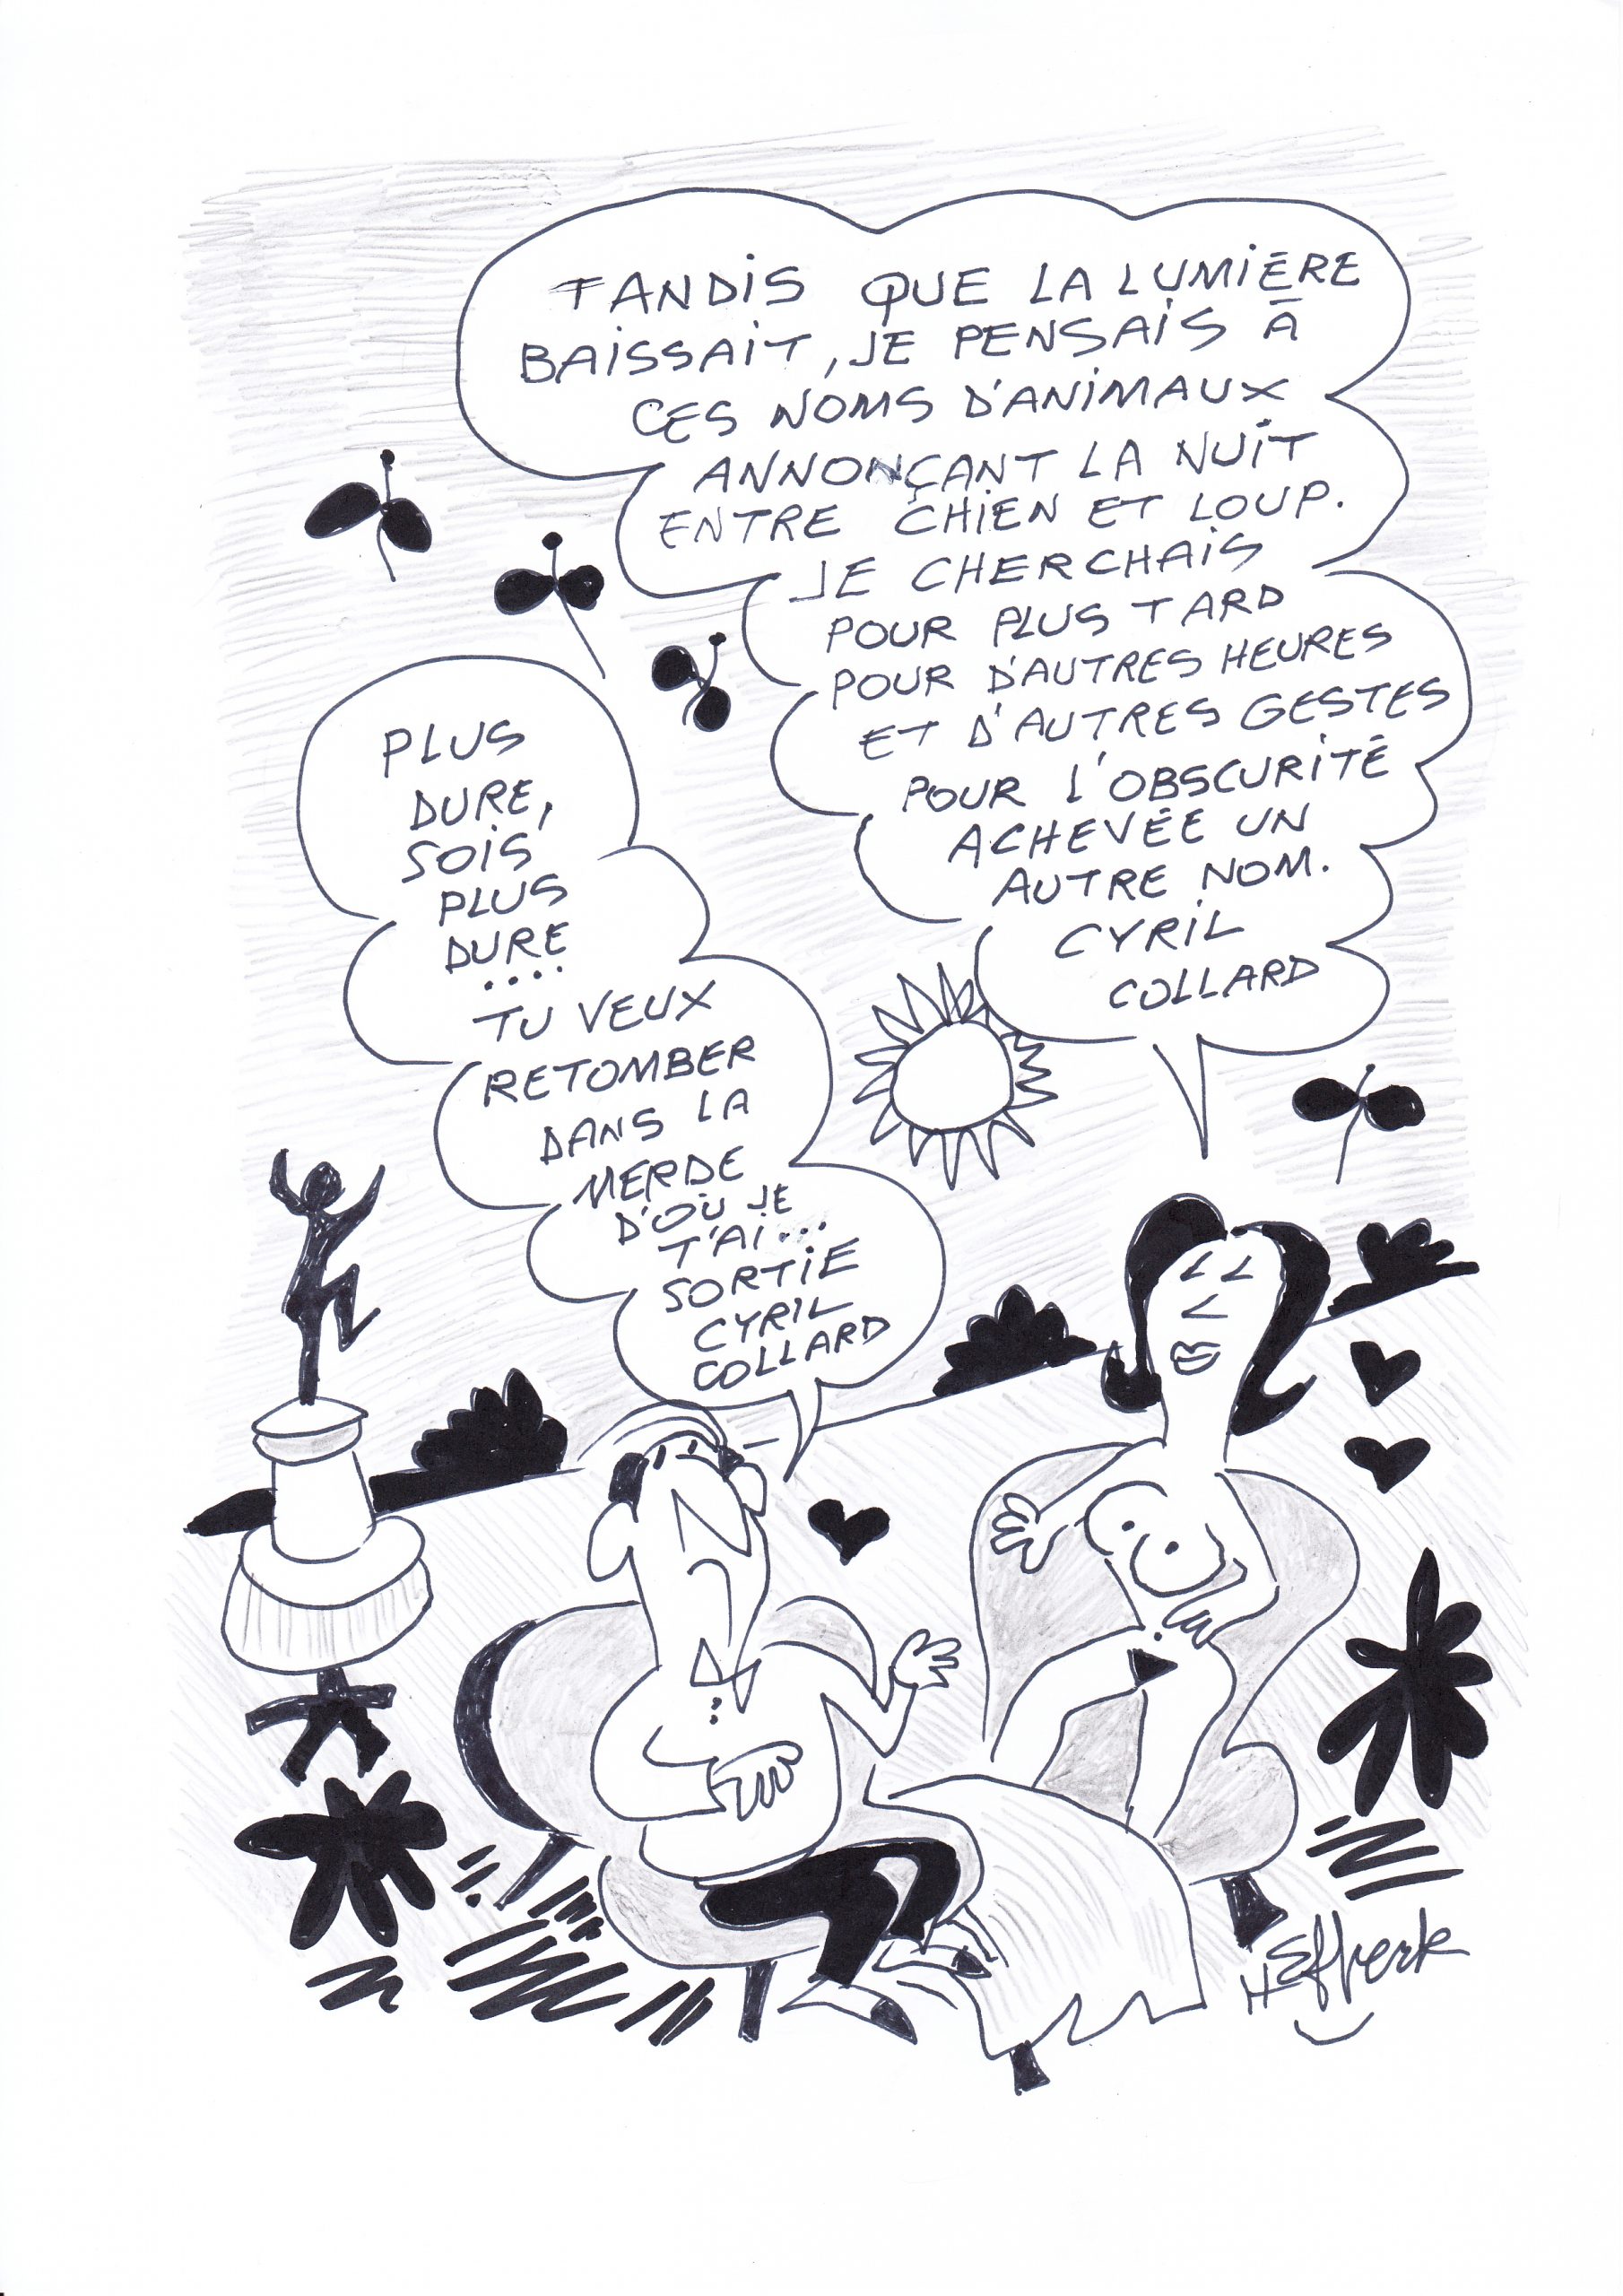 TANDIS QUE LA LUMIÈRE
BAISSAIT, JE PENSAIS À
CES NOMS D'ANIMAUX
ANNONÇANT LA NUIT
ENTRE CHIEN ET LOUP.
JE CHERCHAIS
POUR PLUS TARD
POUR D'AUTRES HEURES
ET D'AUTRES GESTES
POUR L'OBSCURITÉ
ACHEVÉE UN
AUTRE NOM.
CYRIL
COLLARD
PLUS
DURE,
SOIS
PLUS
DURE
....
TU VEUX
RETOMBER
DANS LA
MERDE
D'OÙ JE
T'AI...
SORTIE
CYRIL
COLLARD